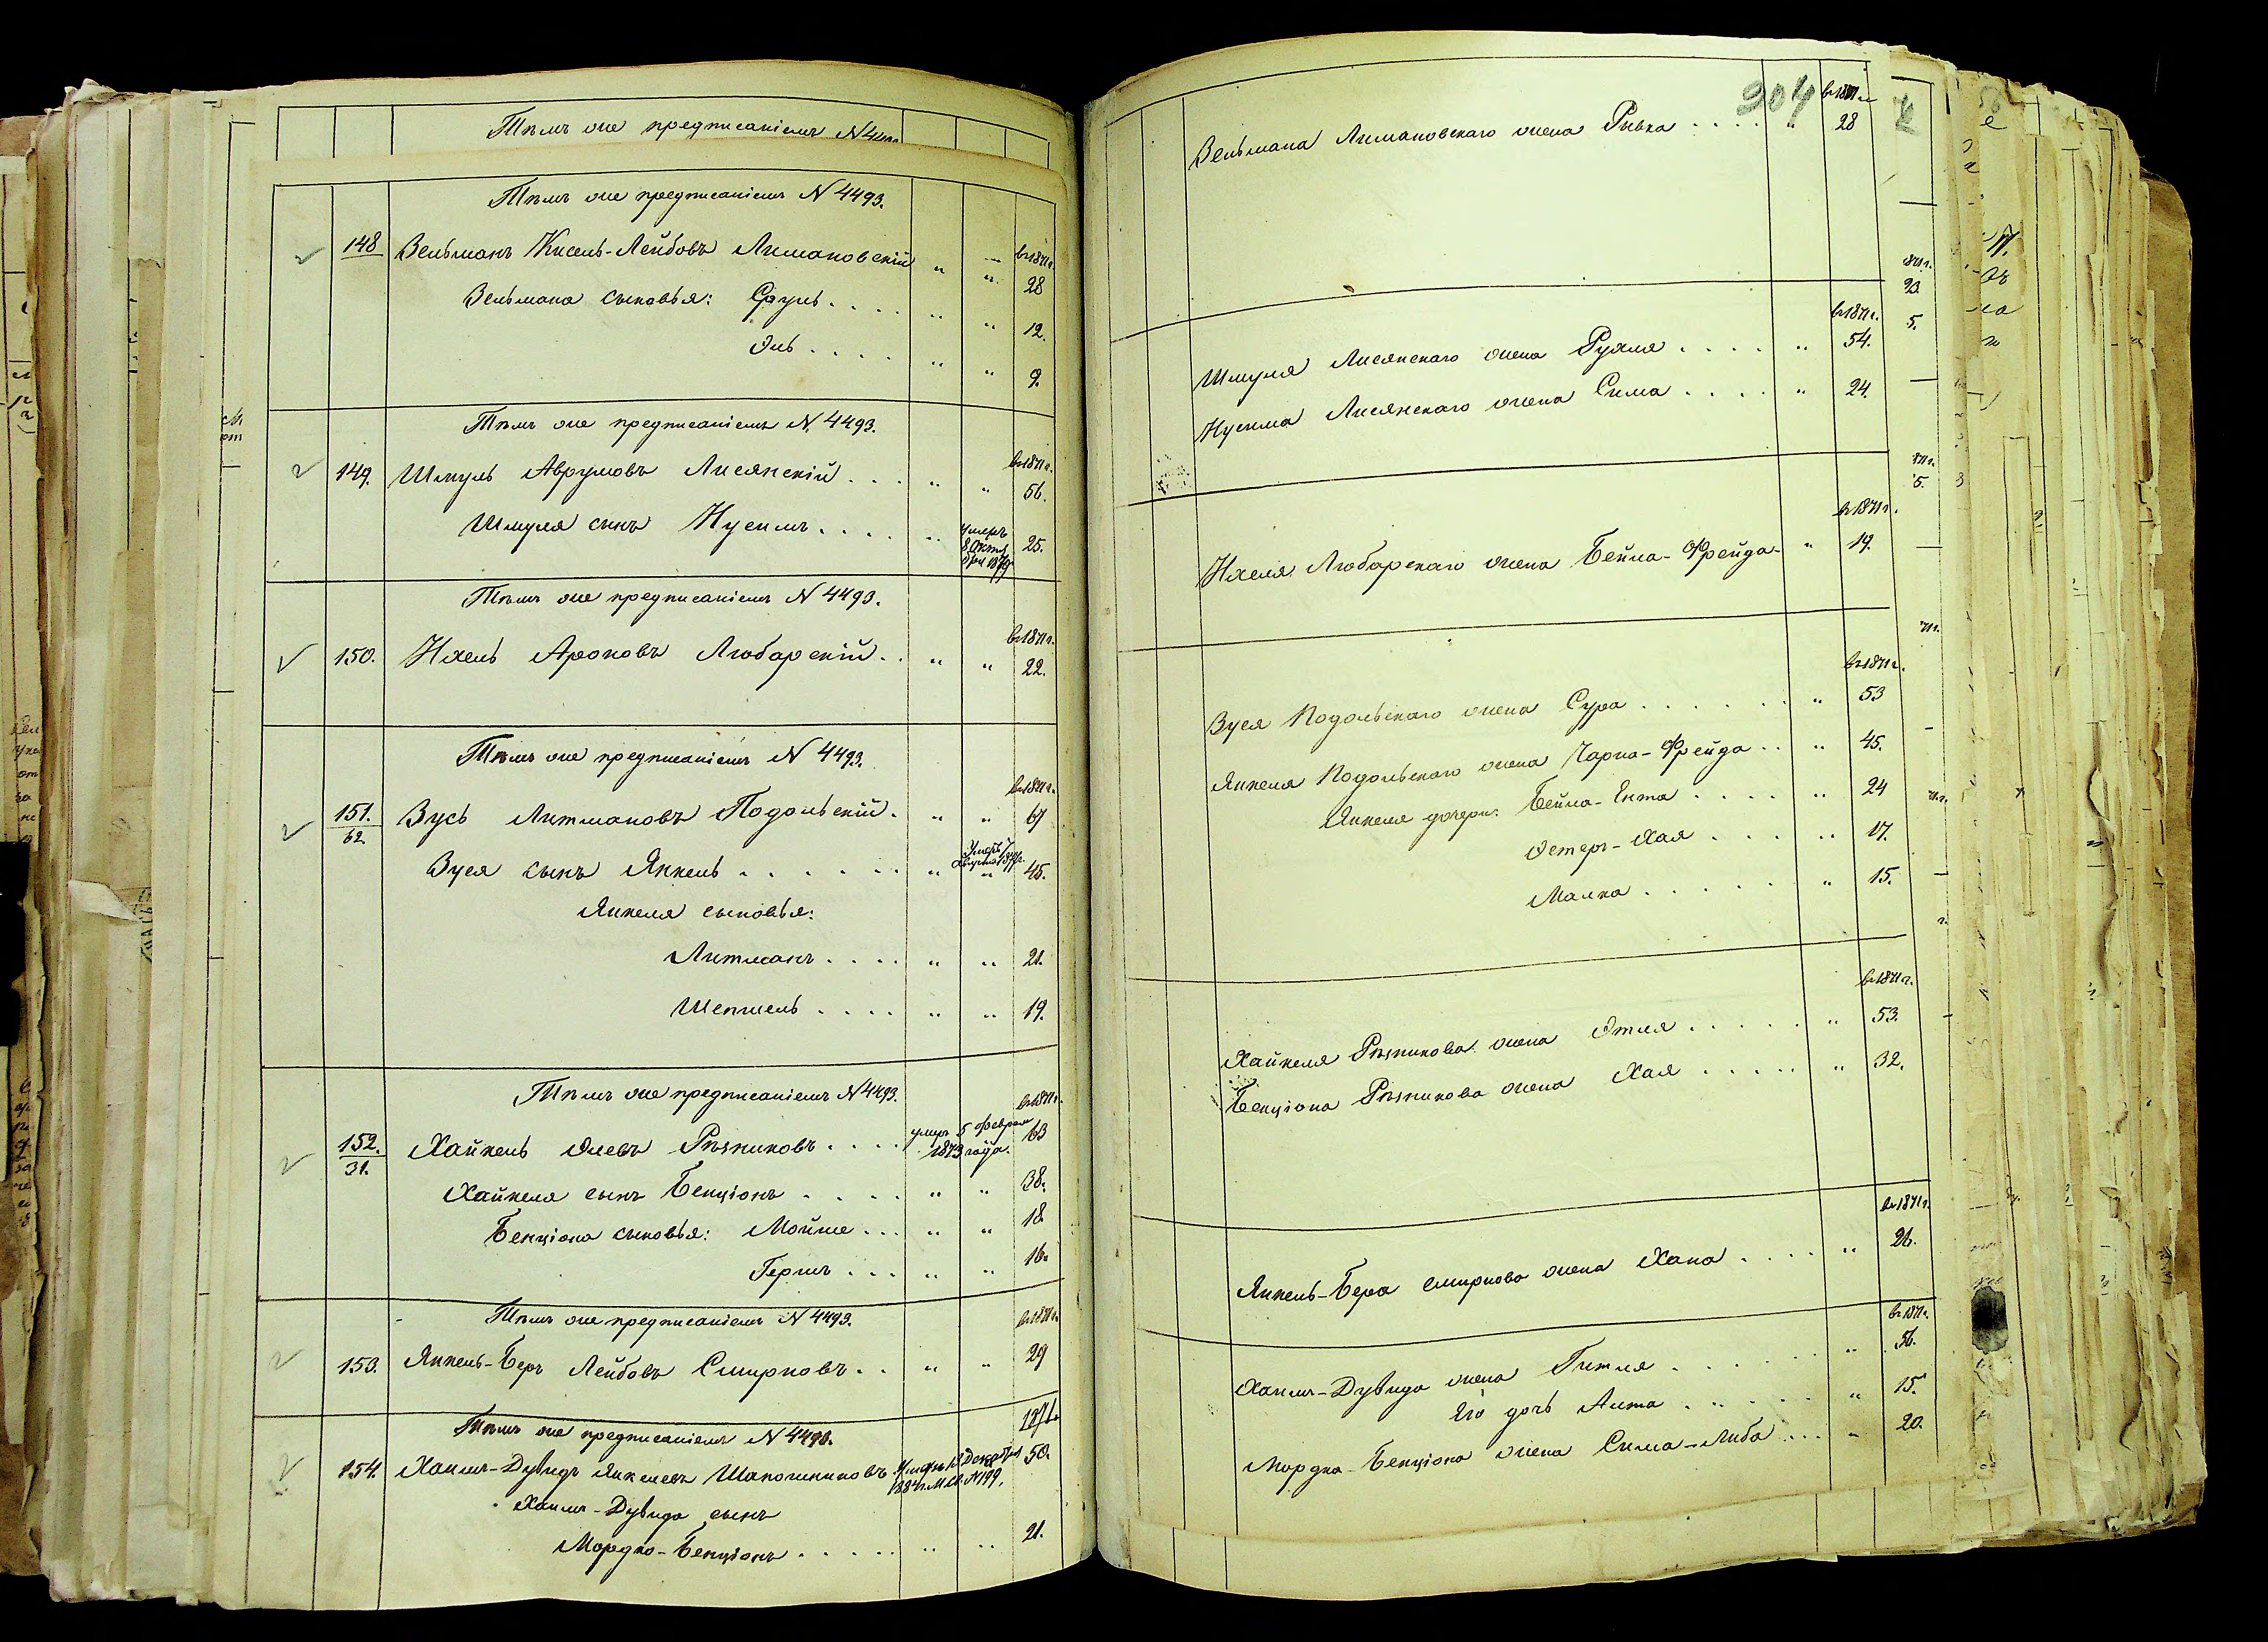 Тѣмъ же предписаніемъ N 4493.
148 Вельманъ Кисель-Лейбовъ Лимановскій " " въ 1871 г. 28
Вельмана сыновья: Сруль . . . . " " 12.
Эль . . . . . " " 9.
Тѣмъ же предписаніемъ N. 4493.
149. Шмуль Аврумовъ Лисянскій . . . " " въ 1871 г. 56.
Шмуля сынъ Нусимъ . . . . " умеръ 8 Октября 1879 25.
Тѣмъ же предписаніемъ N 4493.
150. Ихель Ароновъ Любарскій . . " " въ 1871 г. 22.
Тѣмъ же предписаніемъ N 4493.
151. 62. Зусь Литмановъ Подольскій . " " въ 1871 г. 67
Зуся сынъ Янкель . . . . . . " " 45.
Янкеля сыновья:
Литманъ . . . . " " 21.
Шепшель . . . . " " 19.
Тѣмъ же предписаніемъ N 4493.
152. 31. Хайкель Элевъ Рѣзниковъ . . . . умеръ 5 Февраля 1873 года. въ 1871 г. 63
Хайкеля сынъ Бенціонъ . . . . " " 38.
Бенціона сыновья: Мойше . . . " " 18
Гершъ . . . " " 16.
Тѣмъ же предписаніемъ N 4493.
153. Янкель-Беръ Лейбовъ Смирновъ . . " " въ 1871 г. 29
Тѣмъ же предписаніемъ N 4493.
154. Хаимъ-Дувидъ Янкелевъ Шапошниковъ 1871 50.
Хаимъ-Дувида сынъ
Мордко-Бенціонъ . . . . . " " 21.
204
Вельмана Лимановскаго жена Ривка . . . . " въ 1871 г. 28
Шмуля Лисянскаго жена Рухля . . . . " въ 1871 г. 54.
Нусима Лисянскаго жена Сима . . . . " 24.
Ихеля Любарскаго жена Бейла-Фрейда " въ 1871 г. 19.
Зуся Подольскаго жена Сура . . . . . . " въ 1871 г. 53
Янкеля Подольскаго жена Чарна-Фрейда . . " 45.
Янкеля дочери: Бейла-Ента . . . . " 24
Эстеръ-Хая . . . . " 17.
Малка . . . . . . " 15.
Хайкеля Рѣзникова жена Этля . . . . . " въ 1871 г. 53.
Бенціона Рѣзникова жена Хая . . . . . " 32.
Янкель-Бера Смирнова жена Хана . . . . " въ 1871 г. 26.
Хаимъ-Дувида жена Гитля . . . . . . " въ 1871 г. 56.
Его дочь Анта . . . . . " 15.
Мордка-Бенціона жена Сима-Либа . . . " 20.